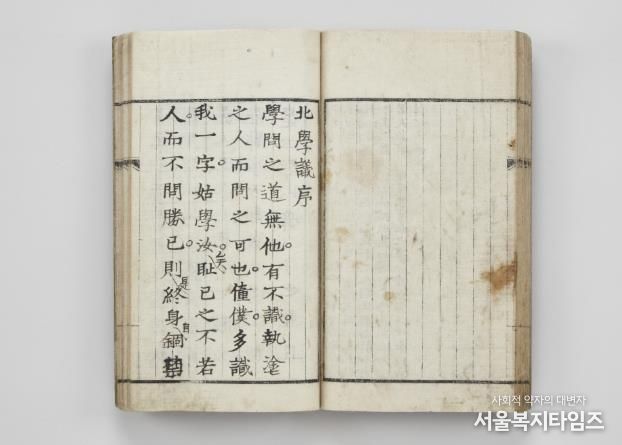 北學議序
學問之道無他。有不識。執塗
之人而問之可也。僮僕多識
我一字。姑學汝。恥己之不若
人。而不問勝己。則是終身自錮
사회적 약자의 대변자
서울복지타임즈